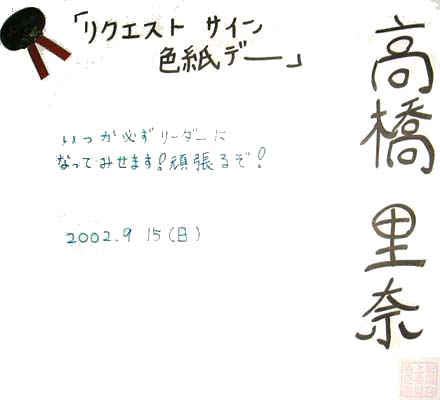 「リクエスト サイン
色紙デー」
高橋 里奈
いつか必ずリーダーに
なってみせます!頑張るぞ!
2002.9 15(日)